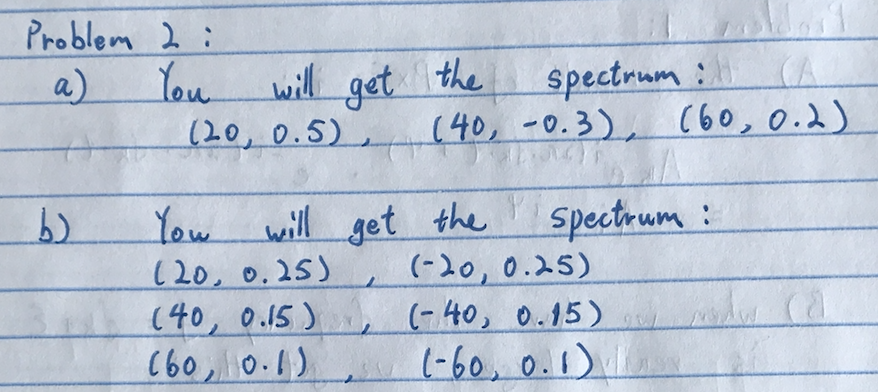 Problem 2 :
a) You will get the spectrum :
(20, 0.5) , (40, -0.3), (60, 0.2)
b) You will get the spectrum :
(20, 0.25) , (-20, 0.25)
(40, 0.15) , (-40, 0.15)
(60, 0.1) , (-60, 0.1)